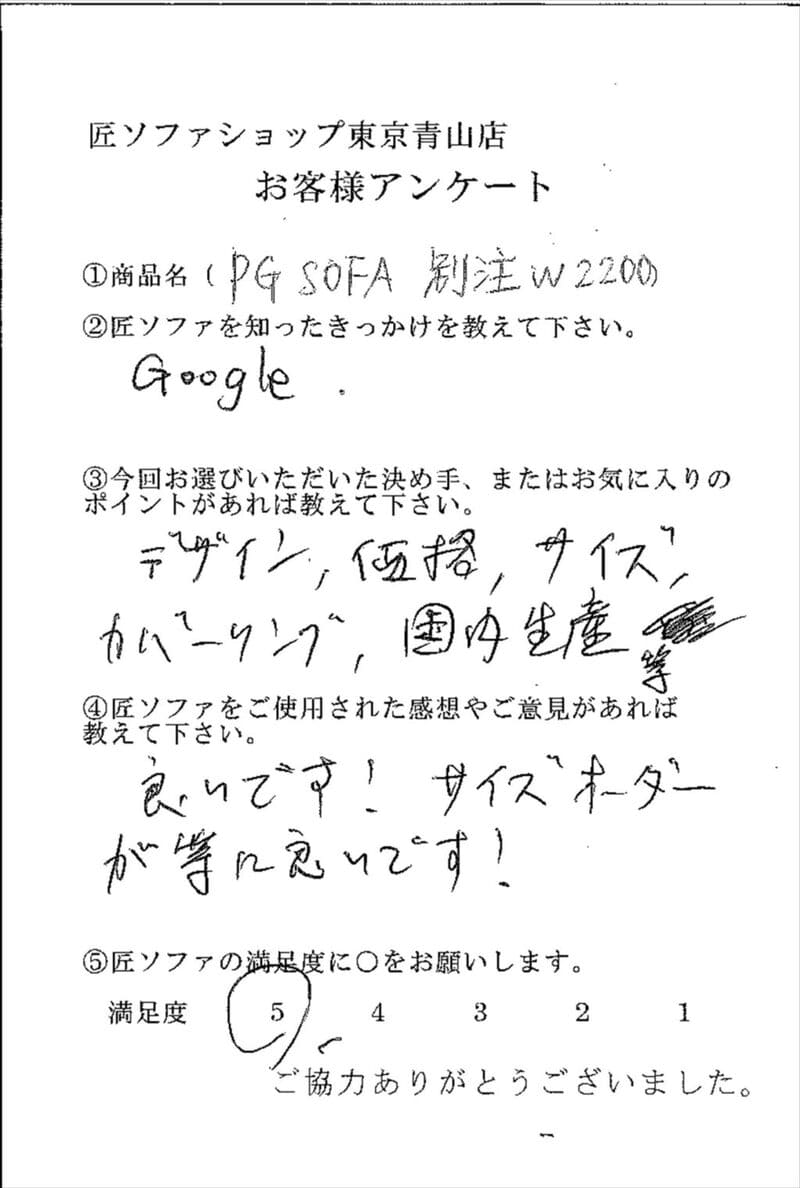 匠ソファショップ東京青山店
お客様アンケート
①商品名（PG SOFA 別注W2200）
②匠ソファを知ったきっかけを教えて下さい。
Google.
③今回お選びいただいた決め手、またはお気に入りの
ポイントがあれば教えて下さい。
デザイン, 価格, サイズ,
カバーリング, 国内生産
等
④匠ソファをご使用された感想やご意見があれば
教えて下さい。
良いです! サイズオーダー
が等に良いです!
⑤匠ソファの満足度に〇をお願いします。
満足度 5 4 3 2 1
ご協力ありがとうございました。